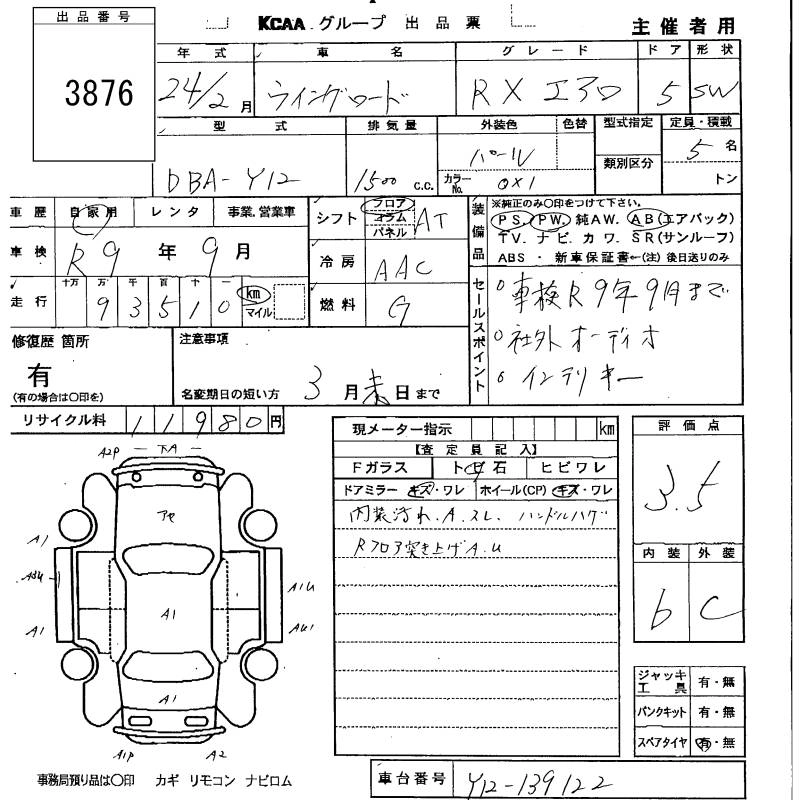 出品番号
3876
KCAA グループ 出品票
主催者用
年式 車名 グレード ドア 形状
24/2月 ウイングロード RX エアロ 5 SW
型式 排気量 外装色 色替 型式指定 定員・積載
DBA-Y12 1500 C.C. パール 類別区分 5名
カラーNo. 0X1 トン
車歴 自家用 レンタ 事業、営業車
車検 R9年9月
走行 十万 万 千 百 十 km
93510 マイル
シフト フロア コラム パネル AT
冷房 AAC
燃料 G
装備品 ※純正のみ○印をつけて下さい。
PS. PW. 純AW. AB(エアバック)
TV. ナビ. カワ. SR(サンルーフ)
ABS ・ 新車保証書←(注)後日送りのみ
セールスポイント
○車検R9年9月まで
○社外オーディオ
○インテリキー
修復歴 箇所 注意事項
有
(有の場合は○印を) 名変期日の短い方 3月末日まで
リサイクル料 11980円
現メーター指示 km
【査定員記入】
Fガラス トビ石 ヒビワレ
ドアミラー キズ・ワレ ホイール(CP) キズ・ワレ
内装汚れ.A.スレ. ハンドルハゲ
Rフロア突き上げA.U
評価点
3.5
内装 外装
b C
ジャッキ工具 有・無
パンクキット 有・無
スペアタイヤ 有・無
A2P 下A
アセ
A1
A1
A1U
A1
A1
AU1
A1
A1P A2
事務局預り品は○印 カギ リモコン ナビロム
車台番号 Y12-139122